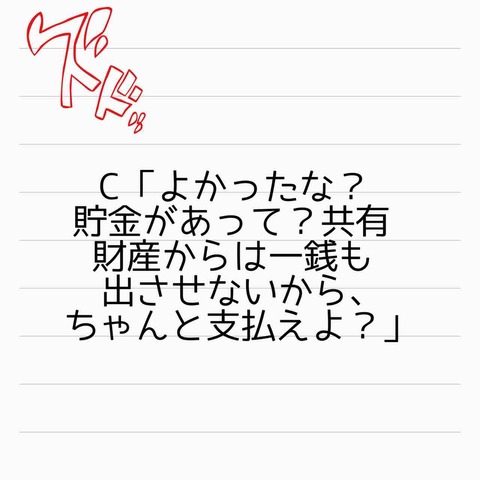 ズドドッ
C「よかったな？
貯金があって？共有
財産からは一銭も
出させないから、
ちゃんと支払えよ？」